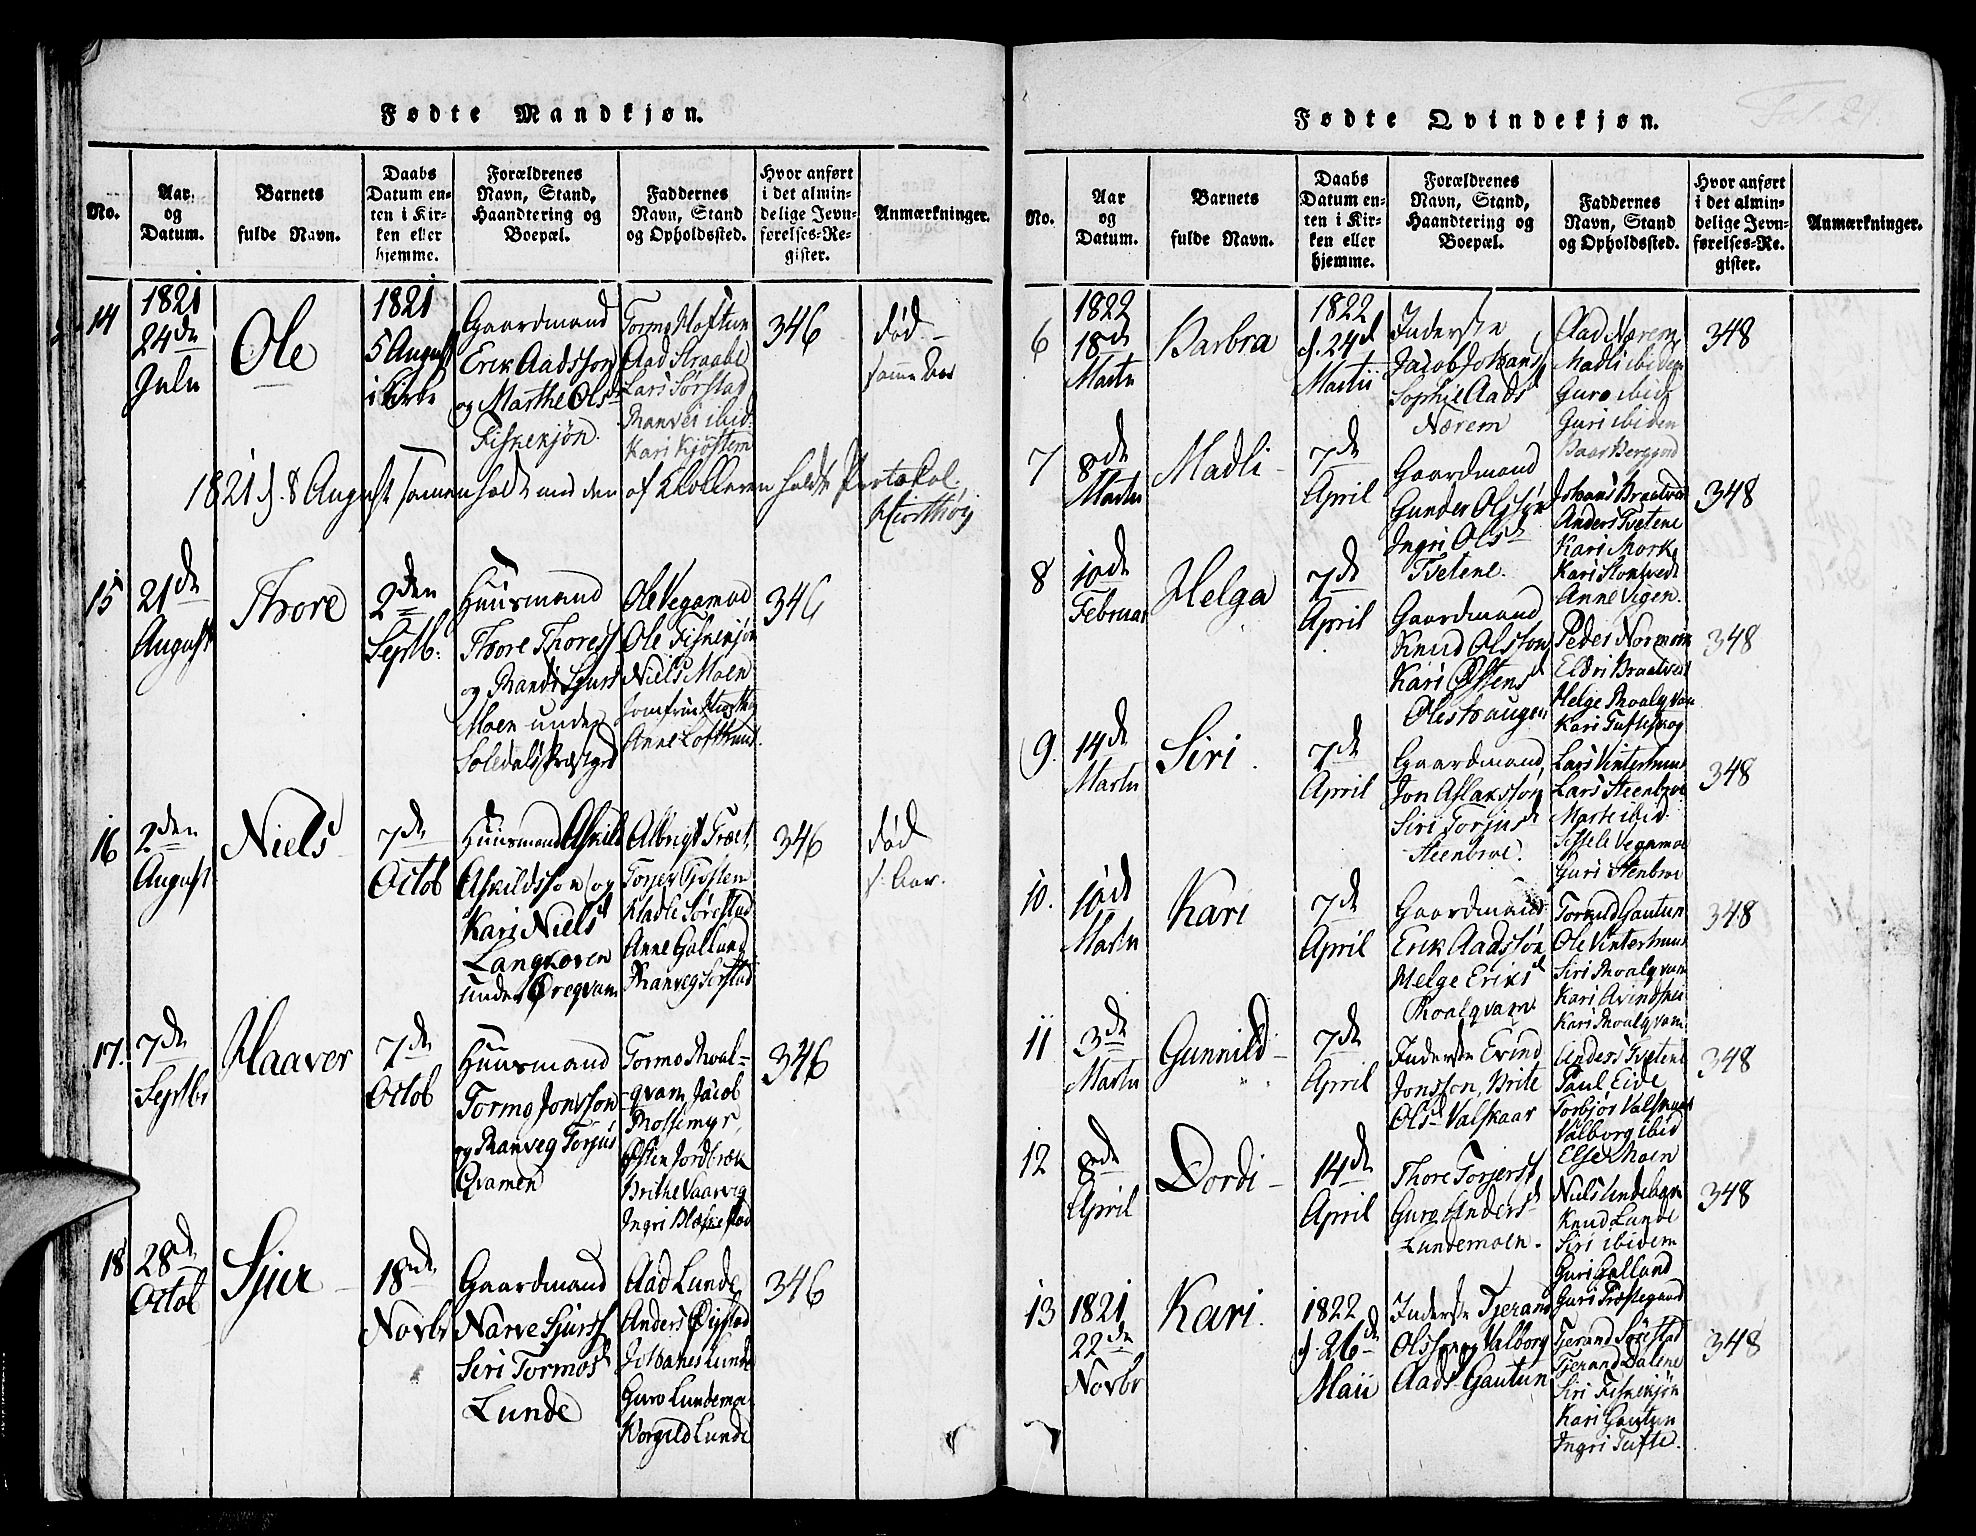 Fødte Mandkjøn.
No.
Aar
og
Datum.
Barnets
fulde Navn.
Daabs
Datum en-
ten i Kir-
ken eller
hjemme.
Forældrenes
Navn, Stand,
Haandtering og
Boepæl.
Faddernes
Navn, Stand
og Opholdssted.
Hvor anført
i det almin-
delige Jevn-
førelses-Re-
gister.
Anmærkninger.
14
1821
24de
Julii
Ole
1821
5 August
i Kirke
Gaardmand
Erik Aadssøn
og Marthe Olsd
Fiskekjøn.
Tormo Hoftun
Aad Straabe
Lars Sørstad
Ranvei ibid.
Kari Kjøsten
346
død
samme Aar
1821 d. 8 August samenholdt med den af Klokkeren holdte Protokol.
Hiorthøy
15
21de
August
Thore
2den
Septb.
Huusmand
Thore Thoress
og Randi Sjurs
Moen under
Soledals Præstgrd
Ole Vegamod
Ole Fiskekjøn
Niels Moen
Jomfru Hiorthøy
Anne Lofthuus
346
16
2den
August
Niels
7de
Octob
Huusmand Askild
Askildssøn og
Kari Nielsd
Langkoven
under Øreqvam
Albrigt Træet
Torjer Tjøsten
Madli Sørestad
Anne Galland
Ranveg Sørstad
346
død
s. Aar.
17.
7de
Septbr
Haaver
7de
Octob
Huusmand
Tormo Jonssøn
og Ranveg Torjus
Qvamen
Tormo Roal-
qvam, Jacob
Mossemyr,
Østen Jordbræk
Brithe Vaarvig
Ingri Blæsestad
346
18
28de
Octob
Sjur
18de
Novbr
Gaardmand
Narve Sjurss
Siri Tormosd
Lunde
Aad Lunde
Anders Øigstad
Johanes Lunde
Guro Lundemoe
Vorgild Lunde
346
Fødte Qvindekjøn.
Fol. 21.
No.
Aar
og
Datum.
Barnets
fulde Navn.
Daabs
Datum en-
ten i Kir-
ken eller
hjemme.
Forældrenes
Navn, Stand,
Haandtering og
Boepæl.
Faddernes
Navn, Stand
og Opholdssted.
Hvor anført
i det almin-
delige Jevn-
førelses-Re-
gister.
Anmærkninger.
6
1822
18de
Martii
Barbra
1822
d. 24d
Martii
Inderste
Jacob Johans
Sophie Aads
Nærem
Aad Nærem
Madli ibidem
Guro ibid.
Guri ibidem
Baar Berggord
348
7
8de
Martii
Madli
7de
April
Gaardmand
Gunder Olssøn
Ingri Olsd
Tvetene.
Johans Braatvedt
Anders Tvetene
Kari Mork
Kari Slontvedt
Anne Vigen.
348
8
10de
Februar
Helga
7de
April
Gaardmand
Knud Olssøn
Kari Østensd
Olestraugen
Peder Normein
Eldri Braatvedt
Helge Roalqvam
Kari Tufteskog
348
9.
14de
Martii
Siri.
7de
April
Gaardmand
Jon Aslakssøn
Siri Torjusd
Steenbroe.
Lars Vinterhuus
Lars Steenbroe
Marte ibid.
Sissele Vegamoe
Guri Stenbroe
348
10.
10de
Martii
Kari
7de
April
Gaardmand
Erik Aadssøn
Helge Eriksd
Roalqvam
Torkild Gautun
Ole Vinterhuus
Siri Roalqvam
Kari Avindsnei
Kari Roalqvam
348
11
3de
Martii
Gunnild
7de
April
Inderste Evind
Jonssøn, Brite
Olsd Valskaar
Anders Tvetene
Paul Eide
Torbjør Valskaar
Valborg ibid
Else Moen
348
12
8de
April
Dordi
14de
April
Thore Torjerss
Guro Andersd
Lundemoen.
Niels Lindebæk
Knud Lunde
Siri ibidem
Guri Galland
Guri Præstegaard
348
13
1821
22de
Novbr
Kari.
1822
d. 26de
Maii
Inderste Tjerand
Olssøn og Valborg
Aads Gautun
Tjerand Sørestad
Tjerand Dalene
Siri Fiskekjøn
Kari Gautun
Ingri Tufte.
348